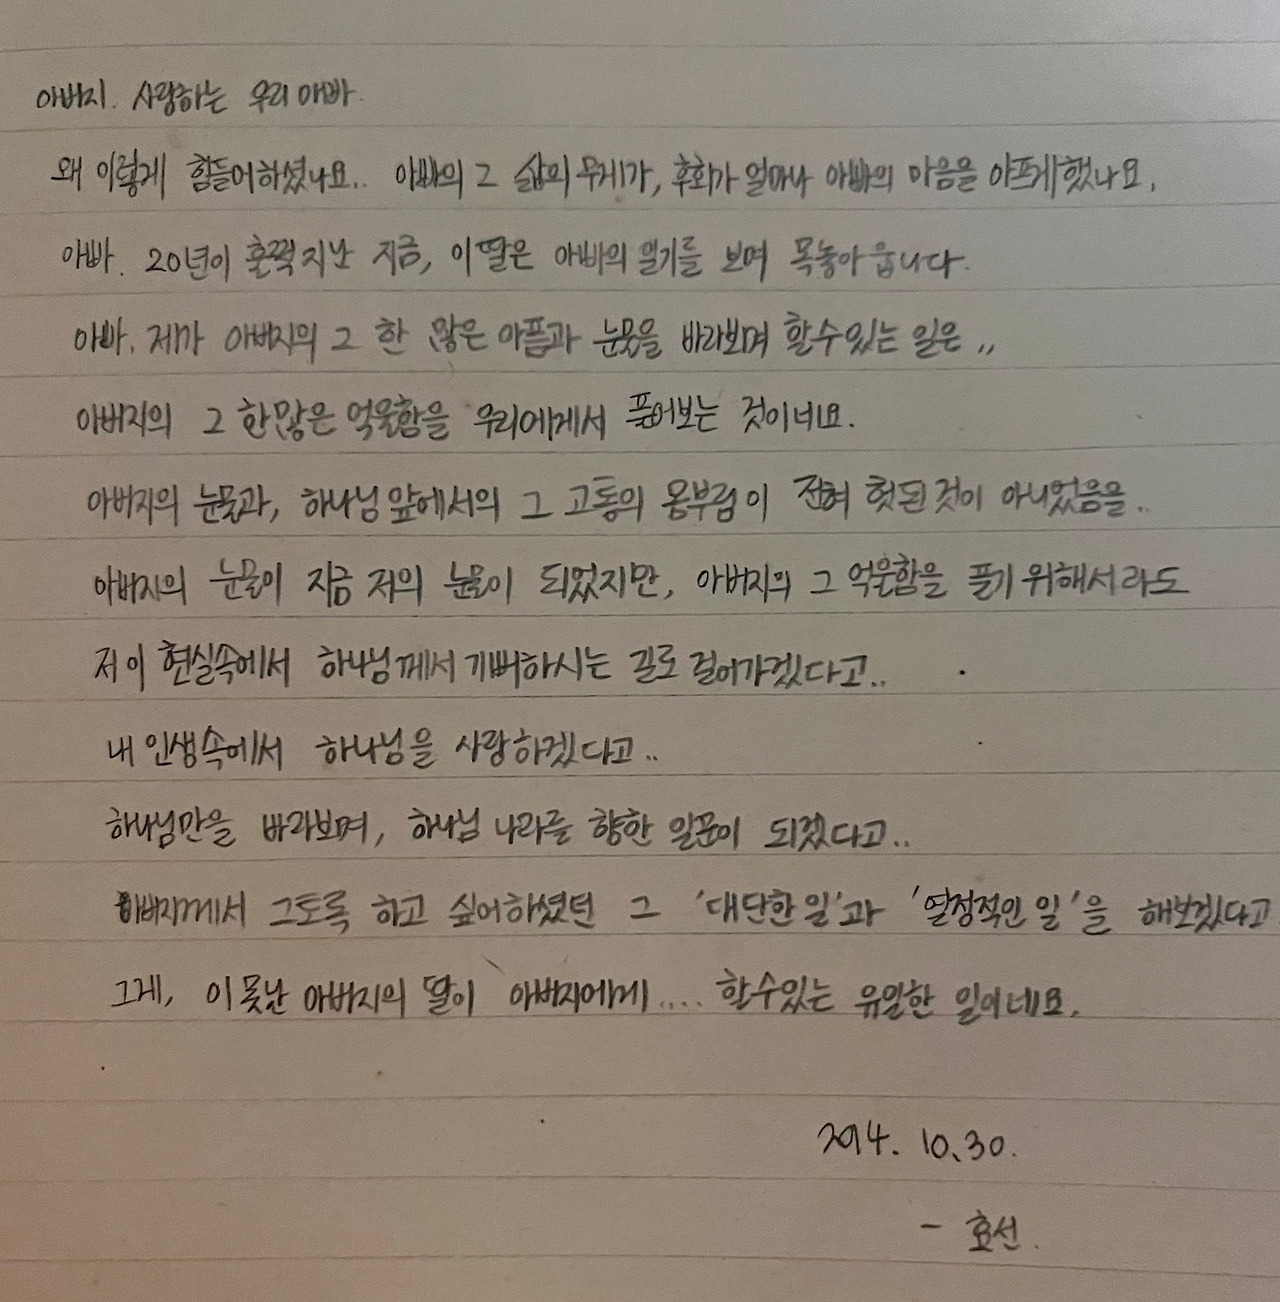 아버지. 사랑하는 우리 아빠.
왜 이렇게 힘들어하셨나요.. 아빠의 그 삶의 무게가, 후회가 얼마나 아빠의 마음을 아프게했나요.
아빠. 20년이 훌쩍 지난 지금, 이 딸은 아빠의 일기를 보며 목놓아 웁니다.
아빠. 제가 아버지의 그 한 많은 아픔과 눈물을 바라보며 할수있는 일은,,
아버지의 그 한많은 억울함을 우리에게서 풀어보는 것이네요.
아버지의 눈물과, 하나님 앞에서의 그 고통의 몸부림이 전혀 헛된 것이 아니었음을..
아버지의 눈물이 지금 저의 눈물이 되었지만, 아버지의 그 억울함을 풀기 위해서라도
저 이 현실속에서 하나님께서 기뻐하시는 길로 걸어가겠다고..
내 인생속에서 하나님을 사랑하겠다고..
하나님만을 바라보며, 하나님 나라를 향한 일꾼이 되겠다고..
아버지께서 그토록 하고 싶어하셨던 그 '대단한 일'과 '열정적인 일'을 해보겠다고
그게, 이 못난 아버지의 딸이 아버지에게.... 할수있는 유일한 일이네요.
2014. 10. 30.
- 효선.